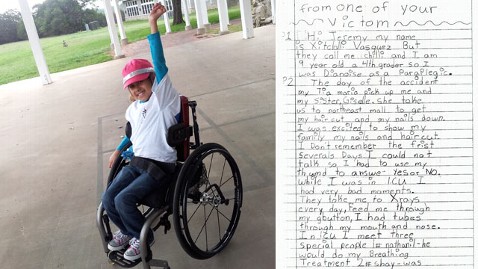 from one of your
Victom
P1 Hi Jeremy my name
is Xitclali Vasquez But
they call me chilli and I am
9 year old a 4th grader so I
was Dianoise as a Paraplegic.
P2 The day of the accident
my Tia maria pick up me and
my sister, Gisele. She take
us to northeast mall to get
my hair cut and my nails down.
I was excited to show my
family my nails and haircut.
I Don't remember the frist
Severals Days I could not
talk so I had to use my
thumd to answe- Yes or No.
while I was in ICU I
had very bad maments.
They take me to Xrays
every day, Feed me through
my gbutton, I had tubes
through my mouth and nose.
In ICU I meet three
special people is nathanil-he
would do my Breathing
Treatment was